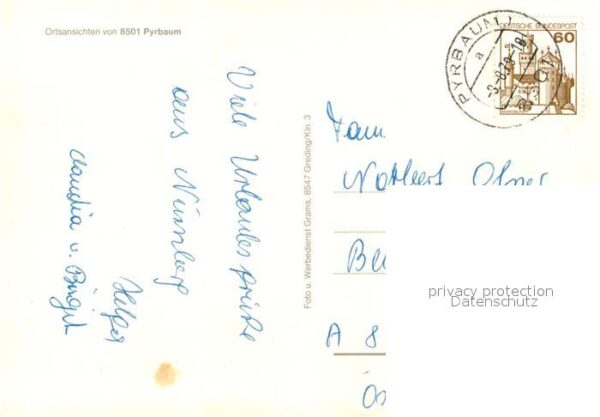 Ortsansichten von 8501 Pyrbaum
Viele Urlaubsgrüße
aus Nürnberg
Claudia u. Birgit
Foto u. Werbedienst Grams, 8547 Greding/Kin. 3
DEUTSCHE BUNDESPOST
60
PYRBAUM 1
a
8501
Fam.
Be
A 8
Ös
privacy protection
Datenschutz